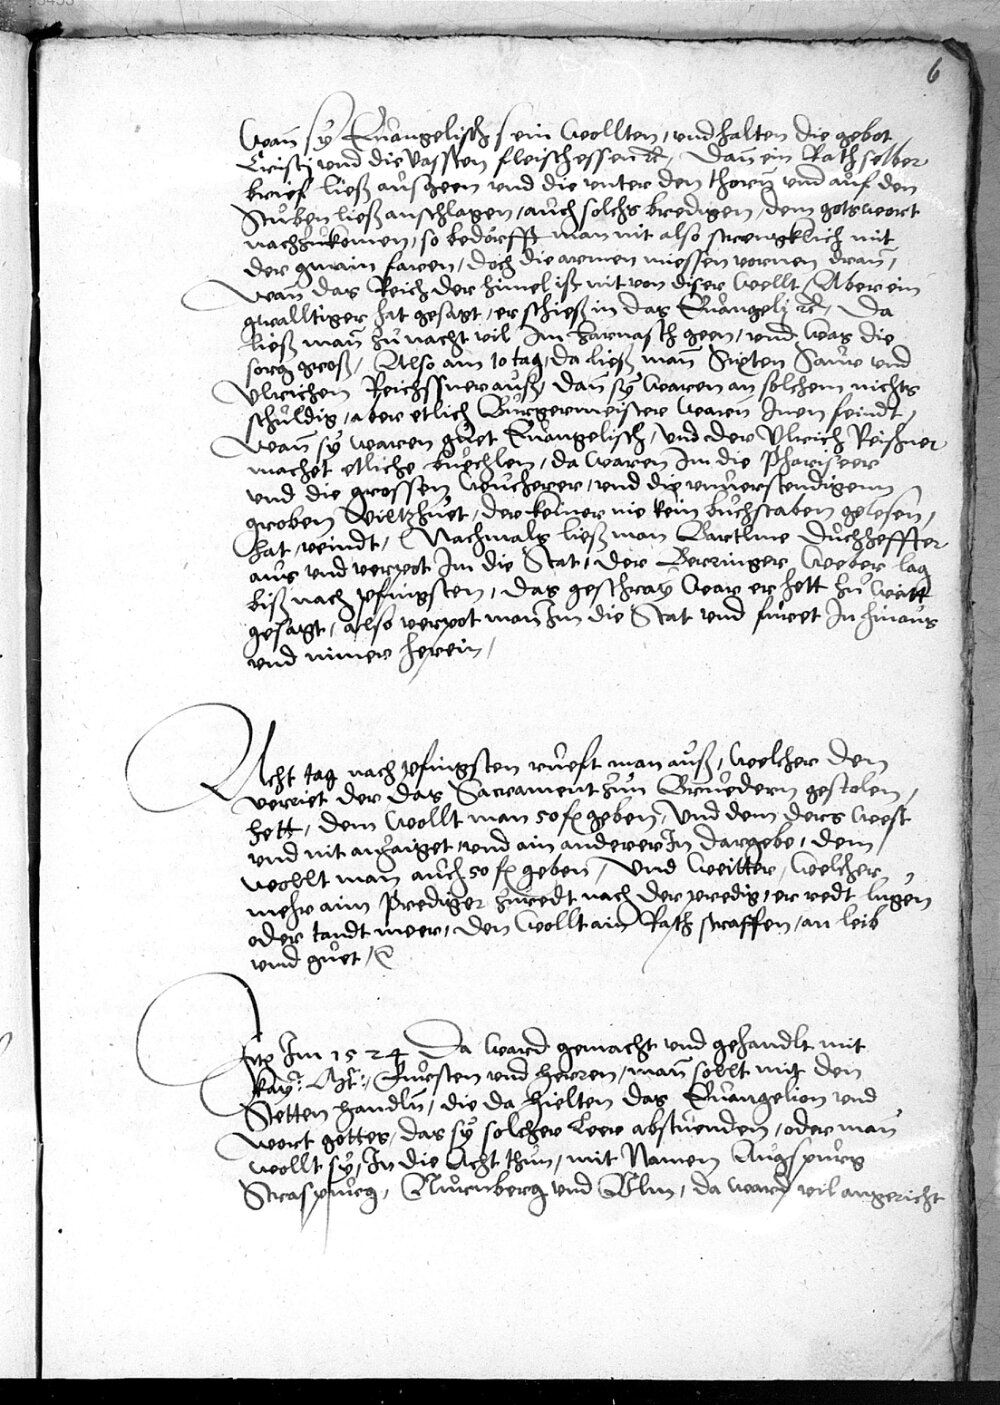 6
Wan̄ sÿ Euangelisch sein wollten, vnd halten die gebot
Cristj vnd die vassten fleisch essen ꝛc, Dan̄ ein Rath selber
brief ließ ausgeen vnd die vnter den thorn̄ vnd auf den
Stuben ließ anschlagen, auch solchs bredigen, dem gotswort
nachzukomen, so bedörfft man nit also strengklich mit
der gmain faren, doch die armen miessen vornen dran̄,
Wan̄ das Reich der himel ist nit von diser wellt, Aber ein
gwalltiger hat gesagt, er schieß in das Euangelj ꝛc, Da
ließ man̄ zu nacht vil Im harnasch geen, vnd was die
sorg groß, Also am 10 tag, da ließ man̄ Sixten Saur vnd
Vlrichen Reichssner auß, dan sÿ waren an solchem nichts
schuldig, aber etlich Burgermeister warn̄ Inen feindt,
Wan̄ sÿ waren guet Euangelisch, vnd der Vlrich Reißner
machet etliche buechlen, da waren Im die Phariseer
vnd die grossen wucherer, vnd die vnuerstendigenn
groben Viltzhuet, der keiner nie kein buchstaben gelesen,
hat, veindt, Nachmals ließ man Bartlme Duchheffter
aus vnd verpot Im die Stat, der Berringer weber lag
biß nach pfingsten, das geschray war er hett zu weitt
gesagt, also verpot man Im die Stat vnd furet In hinaus
vnd nimer herein,
Acht tag nach pfingsten rueft man auß, welcher den
verriet der das Sacrament zun Bruedern gestolen,
hett, dem wollt man 50 fl geben, Vnd dem ders west
vnd nit anzaiget, vnd ain anderer In dargebe, dem
wollt man auch 50 fl geben, Vnd weitter, welcher
mehr aim Prediger zuredt nach der predig, er redt lugen
oder tandtmeer, den wollt ain Rath straffen, an leib
vnd guet,
Im 1524 Da ward gemacht vnd gehandlt mit
Kay: Mt:, Fürsten vnd herren, man̄ sollt mit den
Stetten handln̄, die da hielten das Euangelion vnd
wort gottes, das sÿ solcher Leer abstuenden, oder man
wollt sÿ, In die Acht thun, mit Namen Augspurg
Straspurg, Nurnberg vnd Vlm, da ward vil angericht